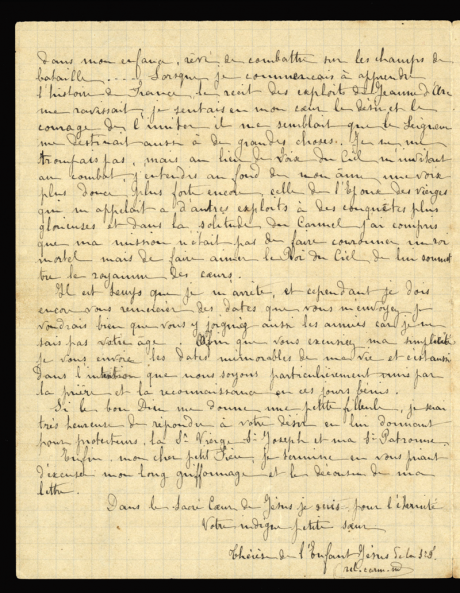 dans mon enfance, rêvé de combattre sur les champs de
bataille .... Lorsque je commençais à apprendre
l'histoire de France, le récit des exploits de Jeanne d'Arc
me ravissait, je sentais en mon cœur le désir et le
courage de l'imiter, il me semblait que le Seigneur
me destinait aussi à de grandes choses. Je ne me
trompais pas, mais au lieu de voix du Ciel m'invitant
au combat, j'entendis au fond de mon âme une voix
plus douce, plus forte encore, celle de l'Epoux des vierges
qui m'appelait à d'autres exploits à des conquêtes plus
glorieuses et dans la solitude du Carmel j'ai compris
que ma mission n'était pas de faire couronner un roi
mortel mais de faire aimer le Roi du Ciel, de lui soumet
tre le royaume des cœurs.
Il est temps que je m'arrête, et cependant je dois
encore vous remercier des dates que vous m'envoyez, je
voudrais bien que vous y joigniez aussi les années car je ne
sais pas votre âge. Afin que vous excusiez ma simplicité
je vous envoie les dates mémorables de ma vie et c'est aussi
dans l'intention que nous soyons particulièrement unis par
la prière et la reconnaissance en ces jours bénis.
Si le bon Dieu me donne une petite filleule, je serai
très heureuse de répondre à votre désir en lui donnant
pour protecteurs, la Ste Vierge St Joseph et ma Ste Patronne.
Enfin, mon cher petit Frère, je termine en vous priant
d'excuser mon long griffonnage et le décousu de ma
lettre.
Dans le Sacré Cœur de Jésus je suis pour l'éternité
Votre indigne petite sœur
Thérèse de l'Enfant Jésus de la Ste F.
rel. carm. ind